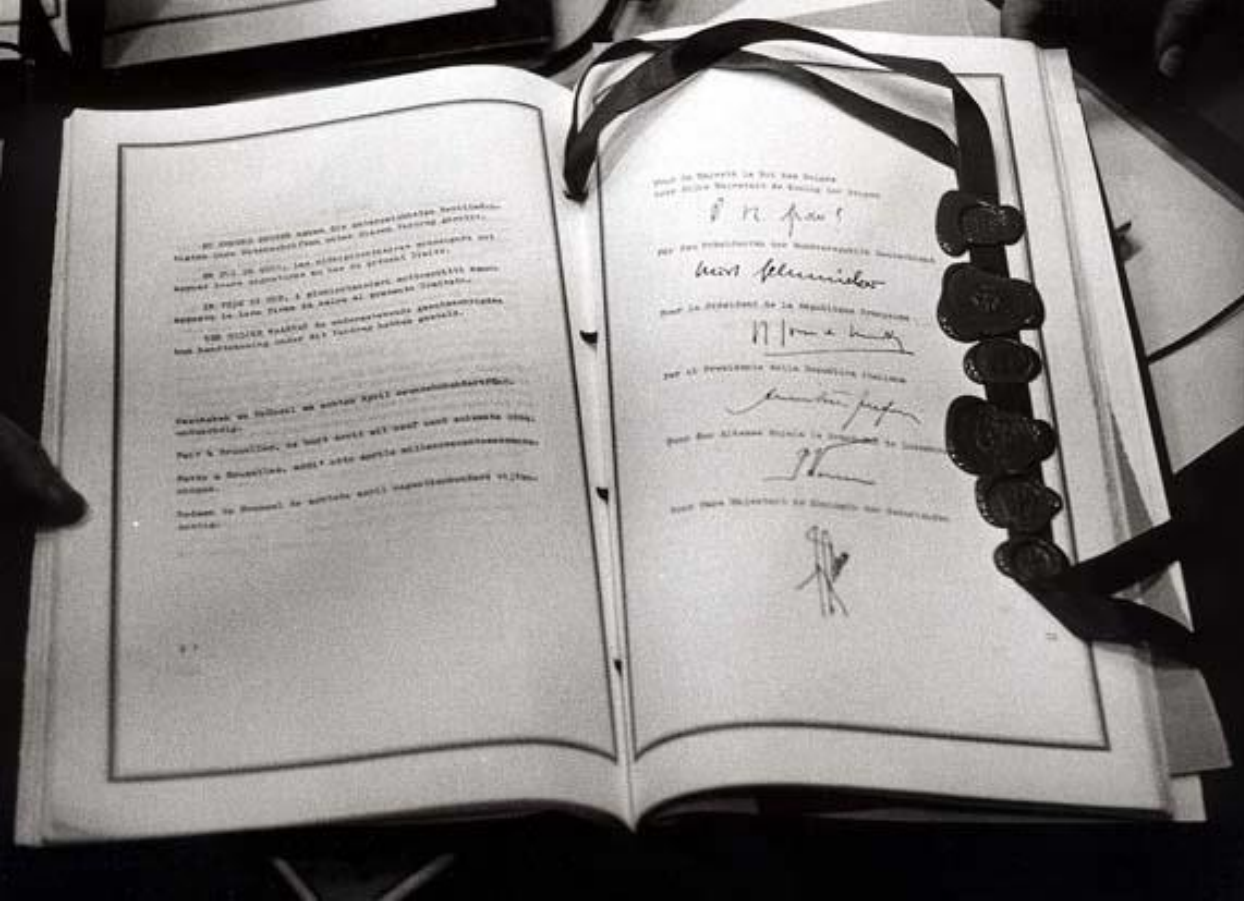 ZU URKUND DESSEN haben die unterzeichneten
ihre Unterschriften unter diesen Vertrag gesetzt.
EN FOI DE QUOI, les plénipotentiaires soussignés ont
apposé leurs signatures au bas du présent Traité.
IN FEDE DI CHE, i plenipotenziari sottoscritti hanno
apposto le loro firme in calce al presente Trattato.
TEN BLIJKE WAARVAN de ondergetekende gevolmachtigden
hun handtekening onder dit Verdrag hebben gesteld.
Geschehen zu Brüssel am achten April neunzehnhundertfünf-
undsechzig.
Fait à Bruxelles, le huit avril mil neuf cent soixante cinq.
Fatto a Bruxelles, addi' otto aprile millenovecentosessanta-
cinque.
Gedaan te Brussel de achtste april negentienhonderd vijfen-
zestig.
Pour Sa Majesté le Roi des Belges
Voor Zijne Majesteit de Koning der Belgen
Für den Präsidenten der Bundesrepublik Deutschland
Kurt Schmücker
Pour le Président de la République française
Per il Presidente della Repubblica italiana
Pour Son Altesse Royale le Grand-Duc de Luxembourg
Voor Hare Majesteit de Koningin der Nederlanden